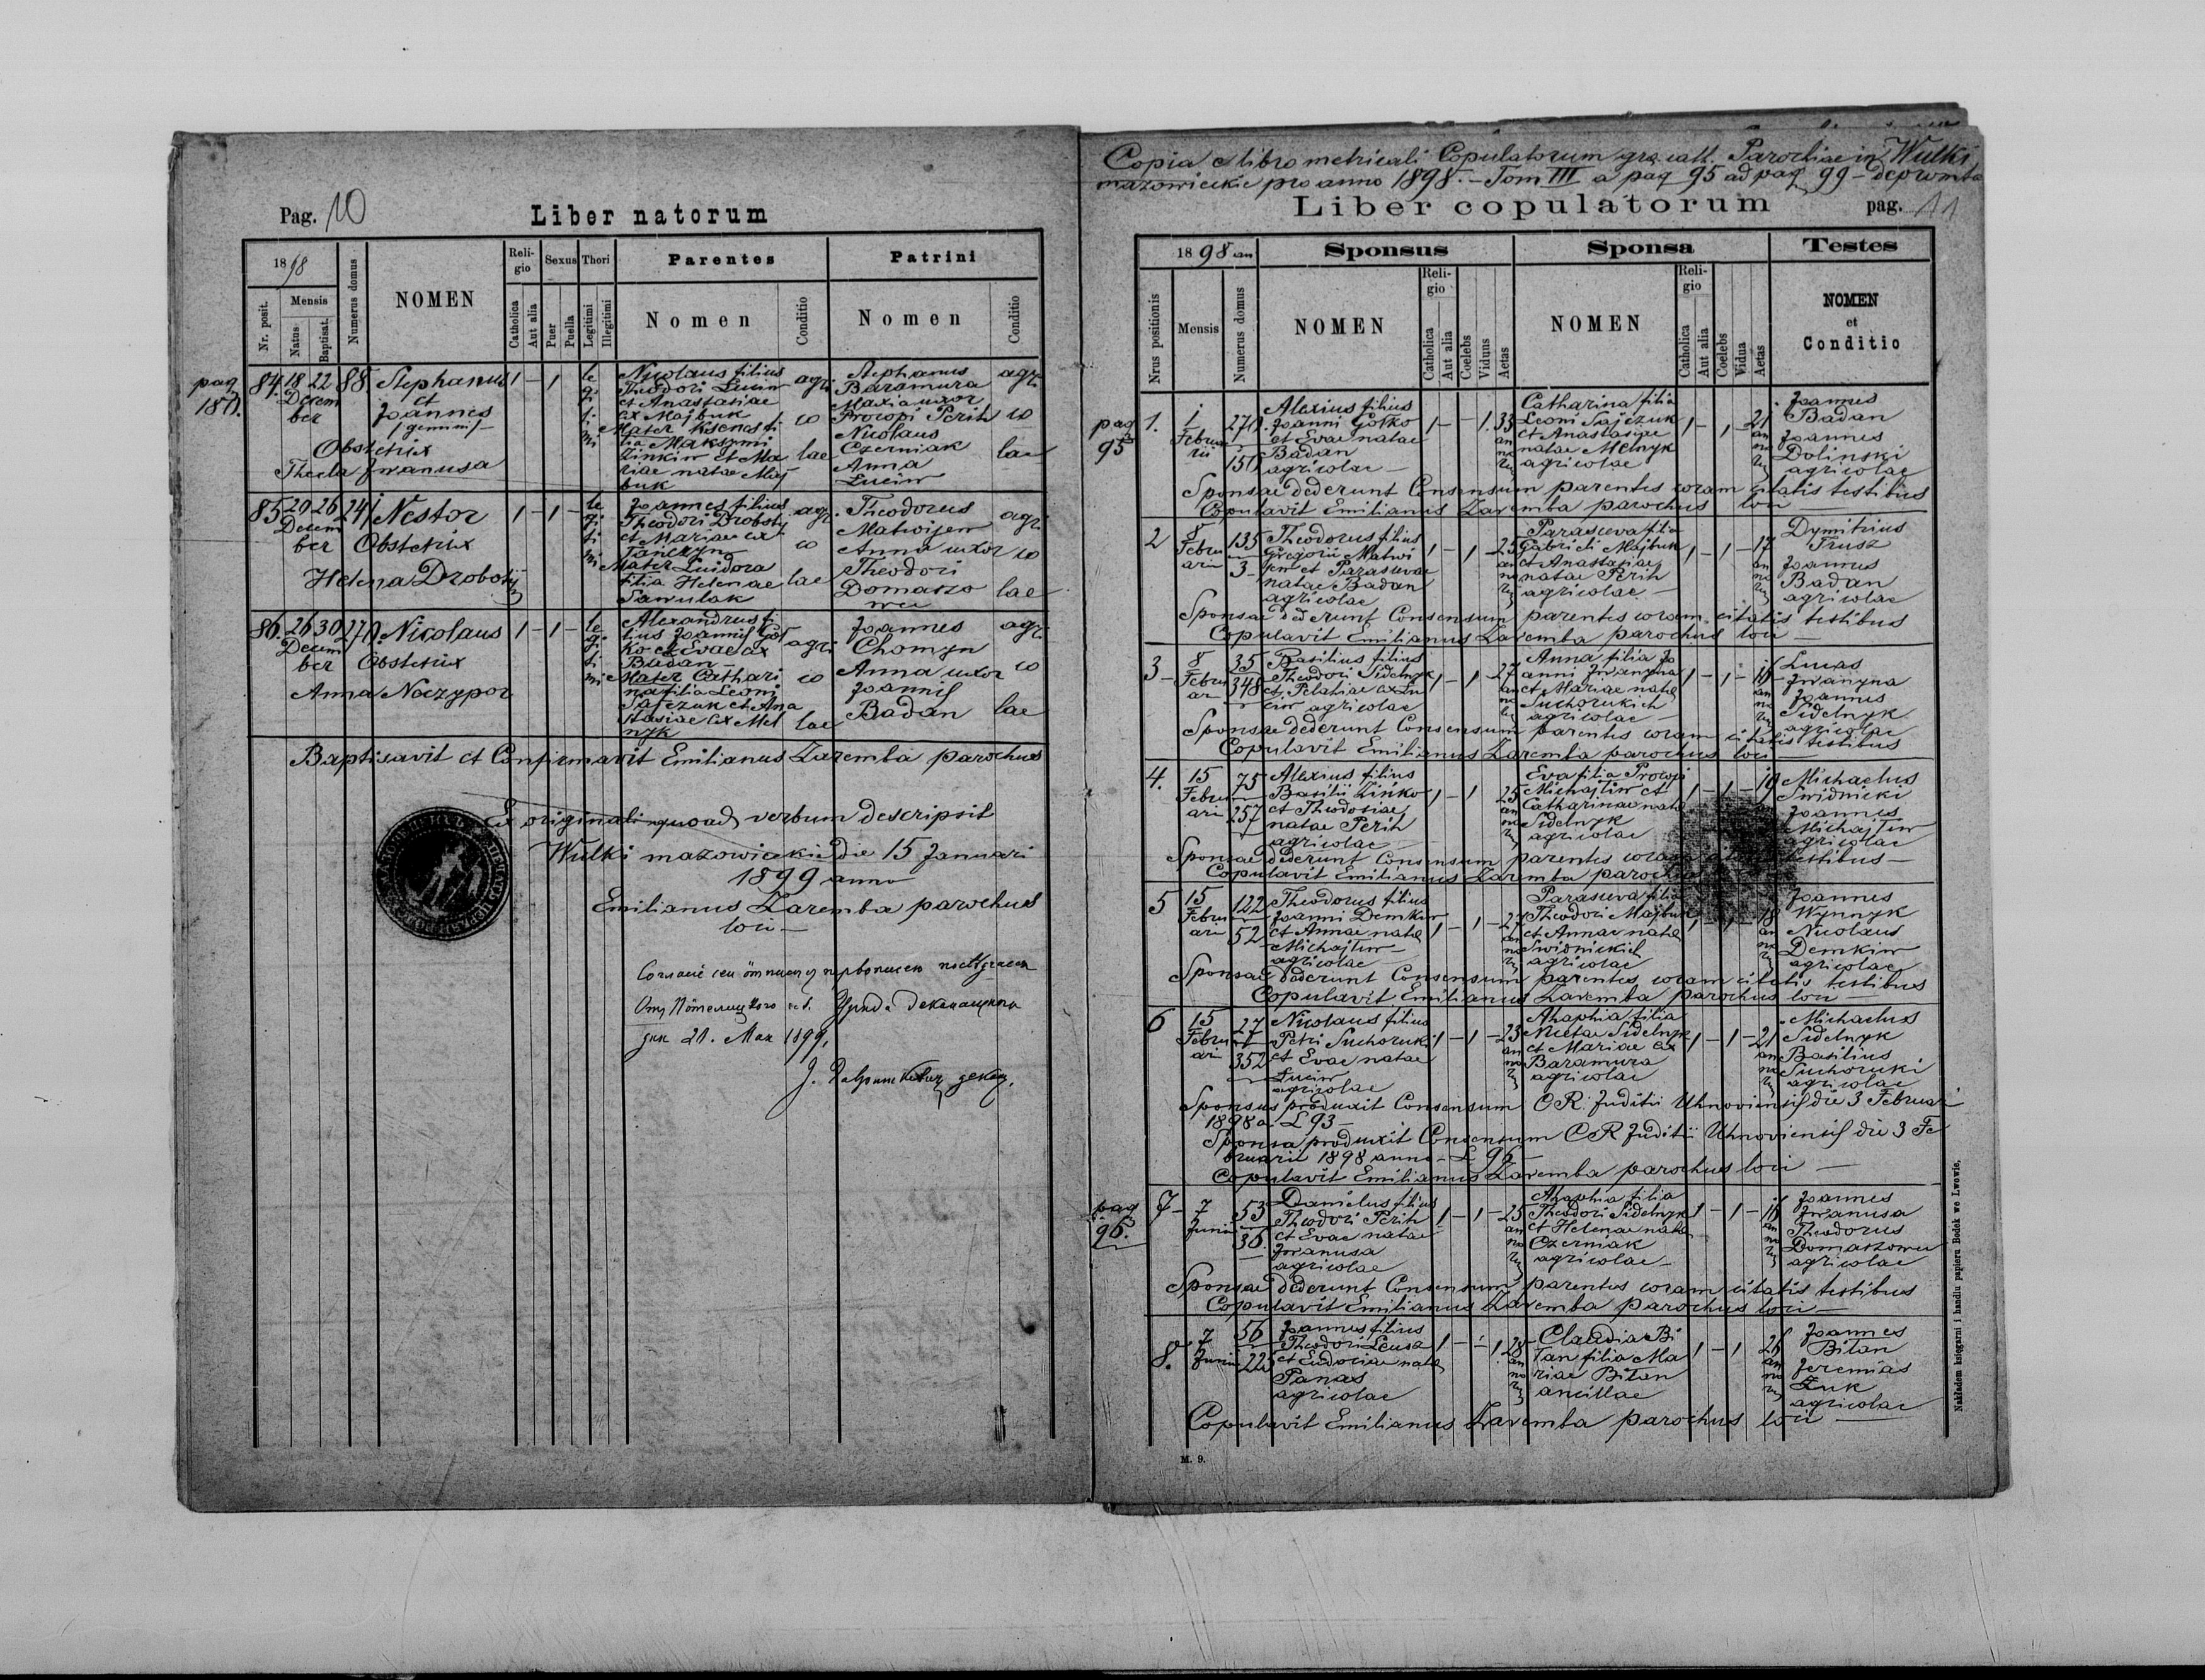 Pag. 10
Liber natorum
1898
Nr. posit.
Mensis
Natus
Baptisat.
Numerus domus
NOMEN
Religio
Catholica
Aut alia
Sexus
Puer
Puella
Thori
Legitimi
Illegitimi
Parentes
Nomen
Conditio
Patrini
Nomen
Conditio
pag
84. 18 22 Decem ber 88. Stephanus et Joannes /gemini/ 1 - 1 legitimi
Obstetrix
Thecla Jwanusa
Nicolaus filius
Theodori Luciw
et Anastasiae
ex Majbuk
Mater Ksenia fi
lia Maksymi
Zinkiw et Ma
riae natae Maj
buk
agri co lae
Stephanus
Baramura
Maria uxor
Procopi Perih
Nicolaus
Czerniak
Anna
Luciw
agri co lae
85 20 26 Decem ber 241 Nestor 1 - 1 - legitimi
Obstetrix
Helena Drobotij
Joannes filius
Theodori Drobotij
et Mariae ex
Tanczyn
Mater Euidora
filia Helenae
Sawulak
agri co lae
Theodorus
Matwijew
Anna uxor
Theodori
Domaszo
wec
agri co lae
86. 26 30 Decem ber 270 Nicolaus 1 - 1 - legitimi
Obstetrix
Anna Naczypor
Alexandrus fi
lius Joannis Goł
ko et Evae ex
Badan
Mater Cathari
na filia Leoni
Sajczuk et Ana
stasiae ex Mel
nyk
agri co lae
Joannes
Chomyn
Anna uxor
Joannis
Badan
agri co lae
Baptisavit et Confirmavit Emilianus Zaremba parochus
Ex originali quoad verbum descripsit
Wulki mazowieckie die 15 Januari
1899 anno
Emilianus Zaremba parochus
loci
дня 21. Мая 1899.
Copia e libro metricali Copulatorum gr. catt. Parochiae in Wulki
mazowieckie pro anno 1898. - Tom III a pag 95 ad pag 99 - deprompta
Liber copulatorum pag. 11
1898 an
Nrus positionis
Mensis
Numerus domus
Sponsus
NOMEN
Religio
Catholica
Aut alia
Coelebs
Viduus
Aetas
Sponsa
NOMEN
Religio
Catholica
Aut alia
Coelebs
Vidua
Aetas
Testes
NOMEN
et
Conditio
pag
95
1. 1 Februarii 270. 150
Alexius filius
Joanni Gołko
et Evae natae
Badan
agricolae
1 - - 1. 33 annorum
Catharina filia
Leoni Sajczuk
et Anastasiae
natae Melnyk
agricolae
1 - 1 - 21 annorum
Joannes
Badan
Joannes
Dolinski
agricolae
Sponsae dederunt Consensum parentes coram citatis testibus
Copulavit Emilianus Zaremba parochus loci
2 8 Februari 135 3
Theodorus filius
Gregorii Matwi
jew et Parascevae
natae Badan
agricolae
1 - 1 - 25 annorum
Parasceva filia
Gabrieli Majbuk
et Anastasiae
natae Perih
agricolae
1 - 1 - 17 annorum
Dymitrius
Trusz
Joannes
Badan
agricolae
Sponsae dederunt Consensum parentes coram citatis testibus
Copulavit Emilianus Zaremba parochus loci
3 8 Februari 35 348
Basilius filius
Theodori Sidelnyk
et Pelatiae ex Lu
ciw agricolae
1 - 1 - 27 annorum
Anna filia Jo
anni Jwanyna
et Mariae natae
Suchoruckich
agricolae
1 - 1 - annorum
Lucas
Jwanyna
Joannes
Sidelnyk
agricolae
Sponsae dederunt Consensum parentes coram citatis testibus
Copulavit Emilianus Zaremba parochus loci
4. 15 Februari 75 257
Alexius filius
Basilii Zinko
et Theodosiae
natae Perih
agricolae
1 - 1 25 annorum
Eva filia Procopi
Michajłiw et
Catharinae natae
Sidelnyk
agricolae
1 - 1 - 19
Michaelus
Swidnicki
Joannes
Michajłiw
agricolae
Sponsae dederunt Consensum parentes coram citatis testibus
Copulavit Emilianus Zaremba parochus
5 15 Februari 122 52
Theodorus filius
Joanni Demkiw
et Annae natae
Michajłiw
agricolae
1 - 1 - 27 annorum
Parasceva filia
Theodori Majbuk
et Annae natae
Swidnickich
agricolae
1 - 1 - 18 annorum
Joannes
Wynnyk
Nicolaus
Demkiw
agricolae
Sponsae dederunt Consensum parentes coram citatis testibus
Copulavit Emilianus Zaremba parochus loci
6 15 Februari 27 352
Nicolaus filius
Petri Suchoruk
et Evae natae
Luciw
agricolae
1 - 1 - 23 annorum
Ahaphia filia
Nicetae Sidelnyk
et Mariae ex
Baramura
agricolae
1 - 1 - 21 annorum
Michaelus
Sidelnyk
Basilius
Suchorucki
agricolae
Sponsus produxit Consensum CR Juditii Uhnoviensis die 3 Februari
1898 a. L 93
Sponsa produxit Consensum CR Juditii Uhnoviensis die 3 Fe
bruarii 1898 anno - L 95
Copulavit Emilianus Zaremba parochus loci
pag
96.
7 7 Junii 53 36.
Danielus filius
Theodori Perih
et Evae natae
Jwanusa
agricolae
1 - 1 - 25 annorum
Ahaphia filia
Theodori Sidelnyk
et Helenae natae
Czerniak
agricolae
1 - 1 - annorum
Joannes
Jwanusa
Theodorus
Domaszowec
agricolae
Sponsae dederunt Consensum parentes coram citatis testibus
Copulavit Emilianus Zaremba parochus loci
8. 7 Junii 56 225
Joannes filius
Theodori Leusa
et Eudociae natae
Panas
agricolae
1 - - 1. 28 annorum
Claudia Bi
łan filia Ma
riae Biłan
ancillae
1 - 1 26 annorum
Joannes
Biłan
Jeremias
Zuk
agricolae
Copulavit Emilianus Zaremba parochus loci
M. 9.
Nakładem księgarni i handlu papieru Bodek we Lwowie.